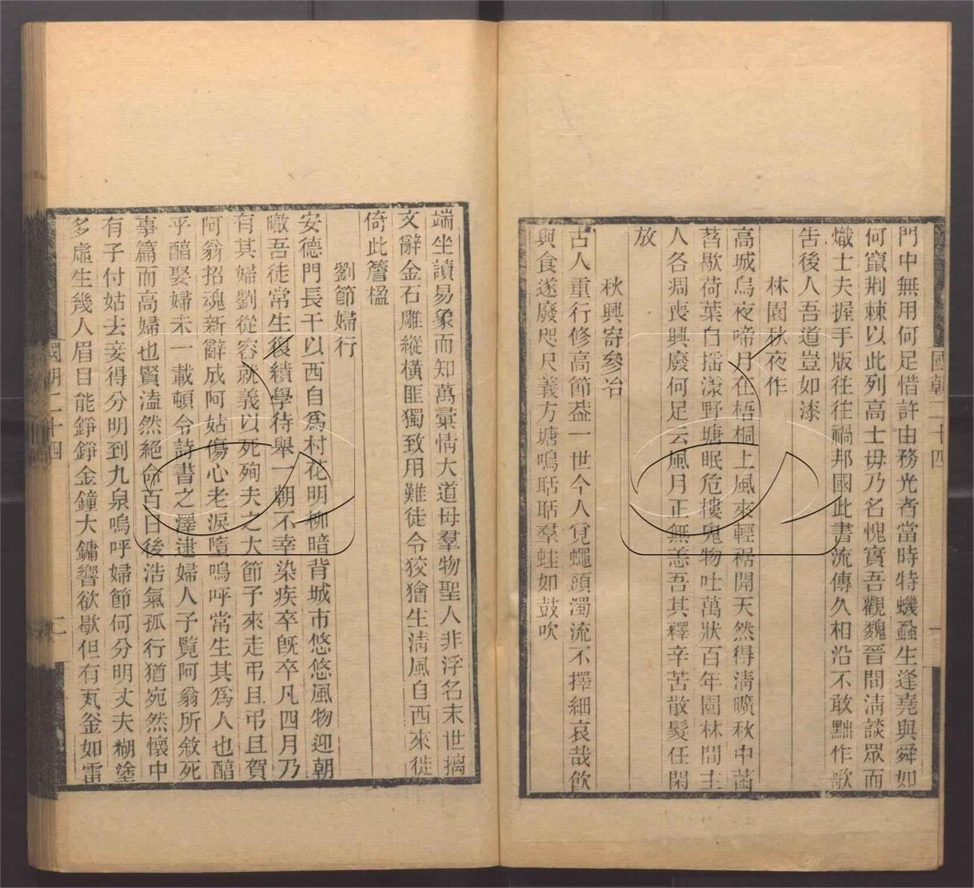 門中無用何足惜許由務光者當時特蟣蝨生逢堯與舜如
何竄荆棘以此列高士毋乃名愧實吾觀魏晉間清談眾而
熾士夫握手版往往禍邦國此書流傳久相沿不敢黜作歌
告後人吾道豈如漆
林園秋夜作
高城烏夜啼月在梧桐上風來輕裾開天然得清曠秋中菡
萏歇荷葉白搖漾野塘眠危樓鬼物吐萬狀百年園林間主
人各凋喪興廢何足云風月正無恙吾其釋辛苦散髮任閑
放
秋興寄參冶
古人重行修高節葢一世今人覓蠅頭濁流不擇細哀哉飲
與食遂廢咫尺義方塘鳴聒聒羣蛙如鼓吹
國朝二十四
端坐讀易象而知萬彙情大道母羣物聖人非浮名末世摛
文辭金石雕縱橫匪獨致用難徒令狡獪生清風自西來徙
倚此簷楹
劉節婦行
安德門長干以西自爲村花明柳暗背城市悠悠風物迎朝
暾吾徒常生後績學待舉一朝不幸染疾卒旣卒凡四月乃
有其婦劉從容就義以死殉夫之大節予來走弔且弔且賀
阿翁招魂新辭成阿姑傷心老淚墮嗚呼常生其爲人也醕
乎醕娶婦未一載頓令詩書之澤逮婦人子覽阿翁所敘死
事篇而高婦也賢溘然絕命百日後浩氣孤行猶宛然懷中
有子付姑去妾得分明到九泉嗚呼婦節何分明丈夫糊塗
多虛生幾人眉目能錚錚金鐘大鏞響欲歇但有瓦釜如雷
國朝二十四
二